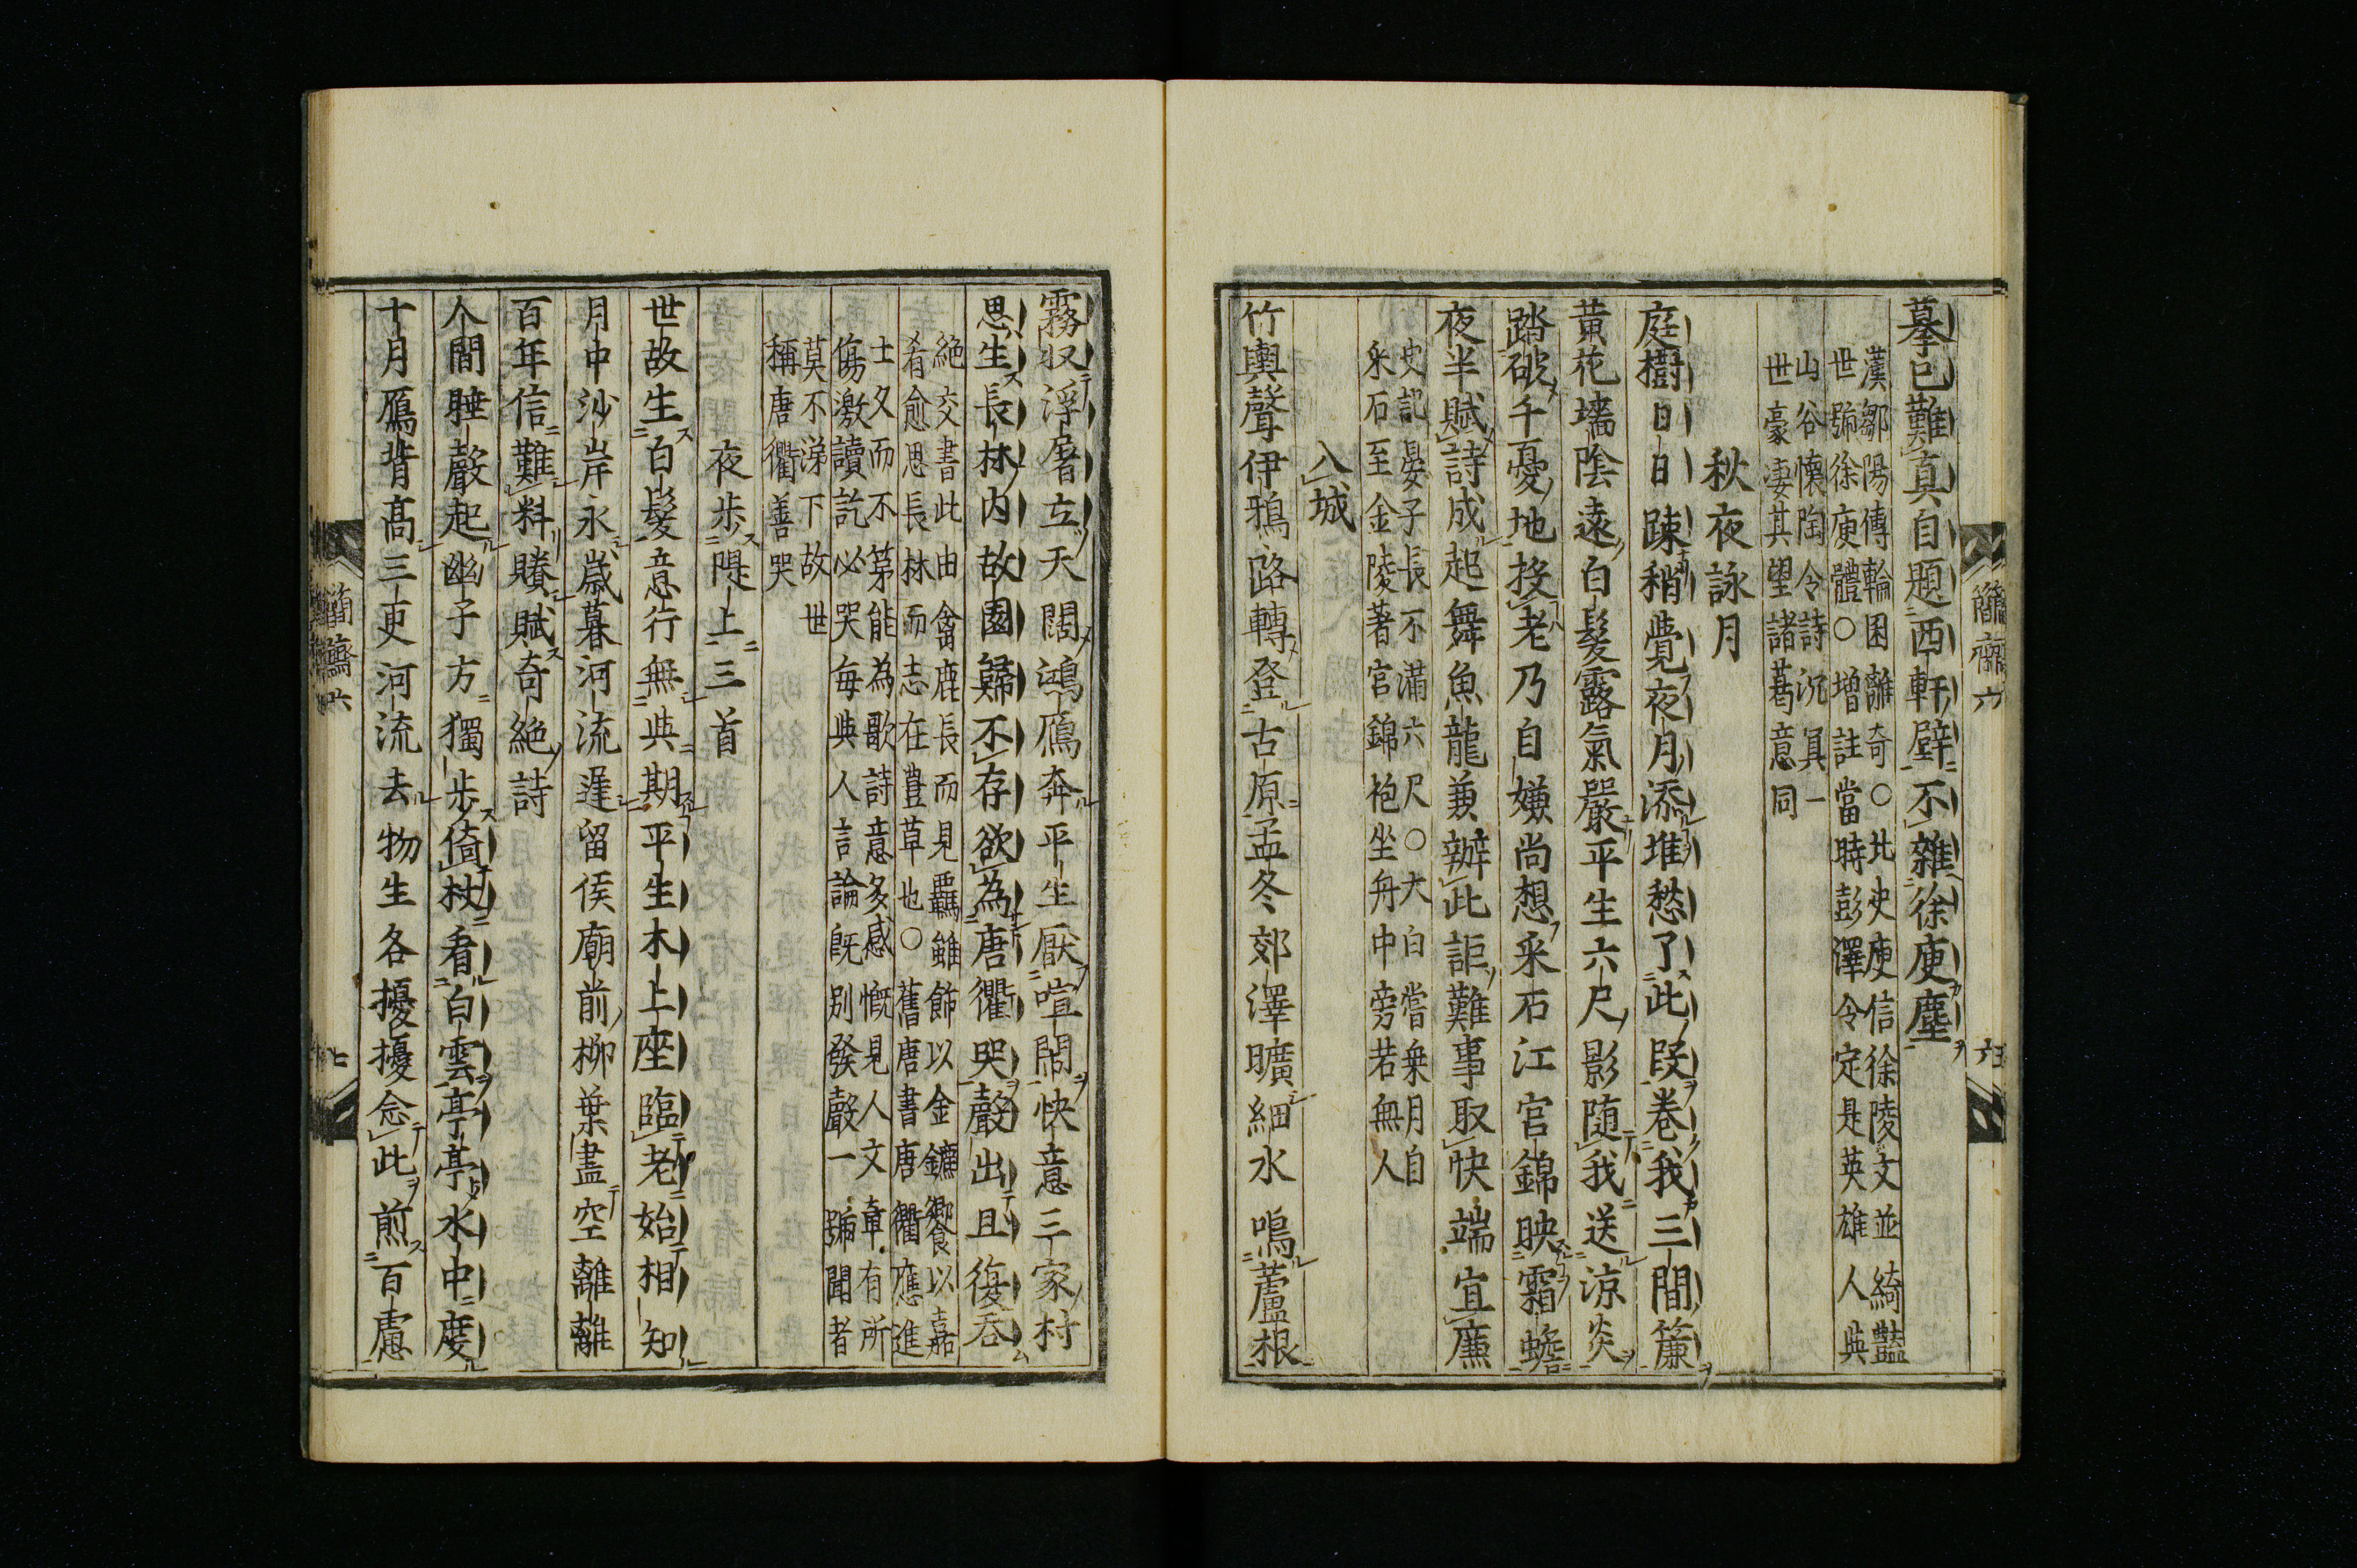 摹已難真自題西軒壁不雜徐庾塵
漢鄒陽傳輪囷離奇〇北史庾信徐陵文並綺豔
世號徐庾體〇增註當時彭澤令定是英雄人與
山谷懷陶令詩沉冥一
世豪凄其望諸葛意同
秋夜詠月
庭樹日日疎稍覺夜月添堆愁了此段卷我三間簾
黃花墻陰遠白髮露氣嚴平生六尺影随我送涼炎
踏破千憂地投老乃自嫌尚想采石江宮錦映霜蟾
夜半賦詩成起舞魚龍兼辦此詎難事取快端宜廉
史記晏子長不滿六尺〇太白嘗乗月自
采石至金陵著宮錦袍坐舟中旁若無人
入城
竹輿聲伊鴉路轉登古原孟冬郊澤曠細水鳴蘆根
簡齋六
霧収浮屠立天闊鴻鴈奔平生厭喧鬧快意三家村
思生長林内故園歸不存欲為唐衢哭聲出且復吞
絶交書此由禽鹿長而見羈雖飾以金鑣饗以嘉
肴愈思長林而志在豊草也〇舊唐書唐衢應進
士久而不第能為歌詩意多感慨見人文章有所
傷激讀訖必哭毎與人言論既别發聲一號聞者
莫不涕下故世
稱唐衢善哭
夜歩隄上三首
世故生白髮意行無與期平生木上座臨老始相知
月中沙岸永歳暮河流遲留侯廟前柳葉盡空離離
百年信難料賸賦奇絶詩
人間睡聲起幽子方獨歩倚杖看白雲亭亭水中度
十月鴈背高三更河流去物生各擾擾念此煎百慮
簡齋六